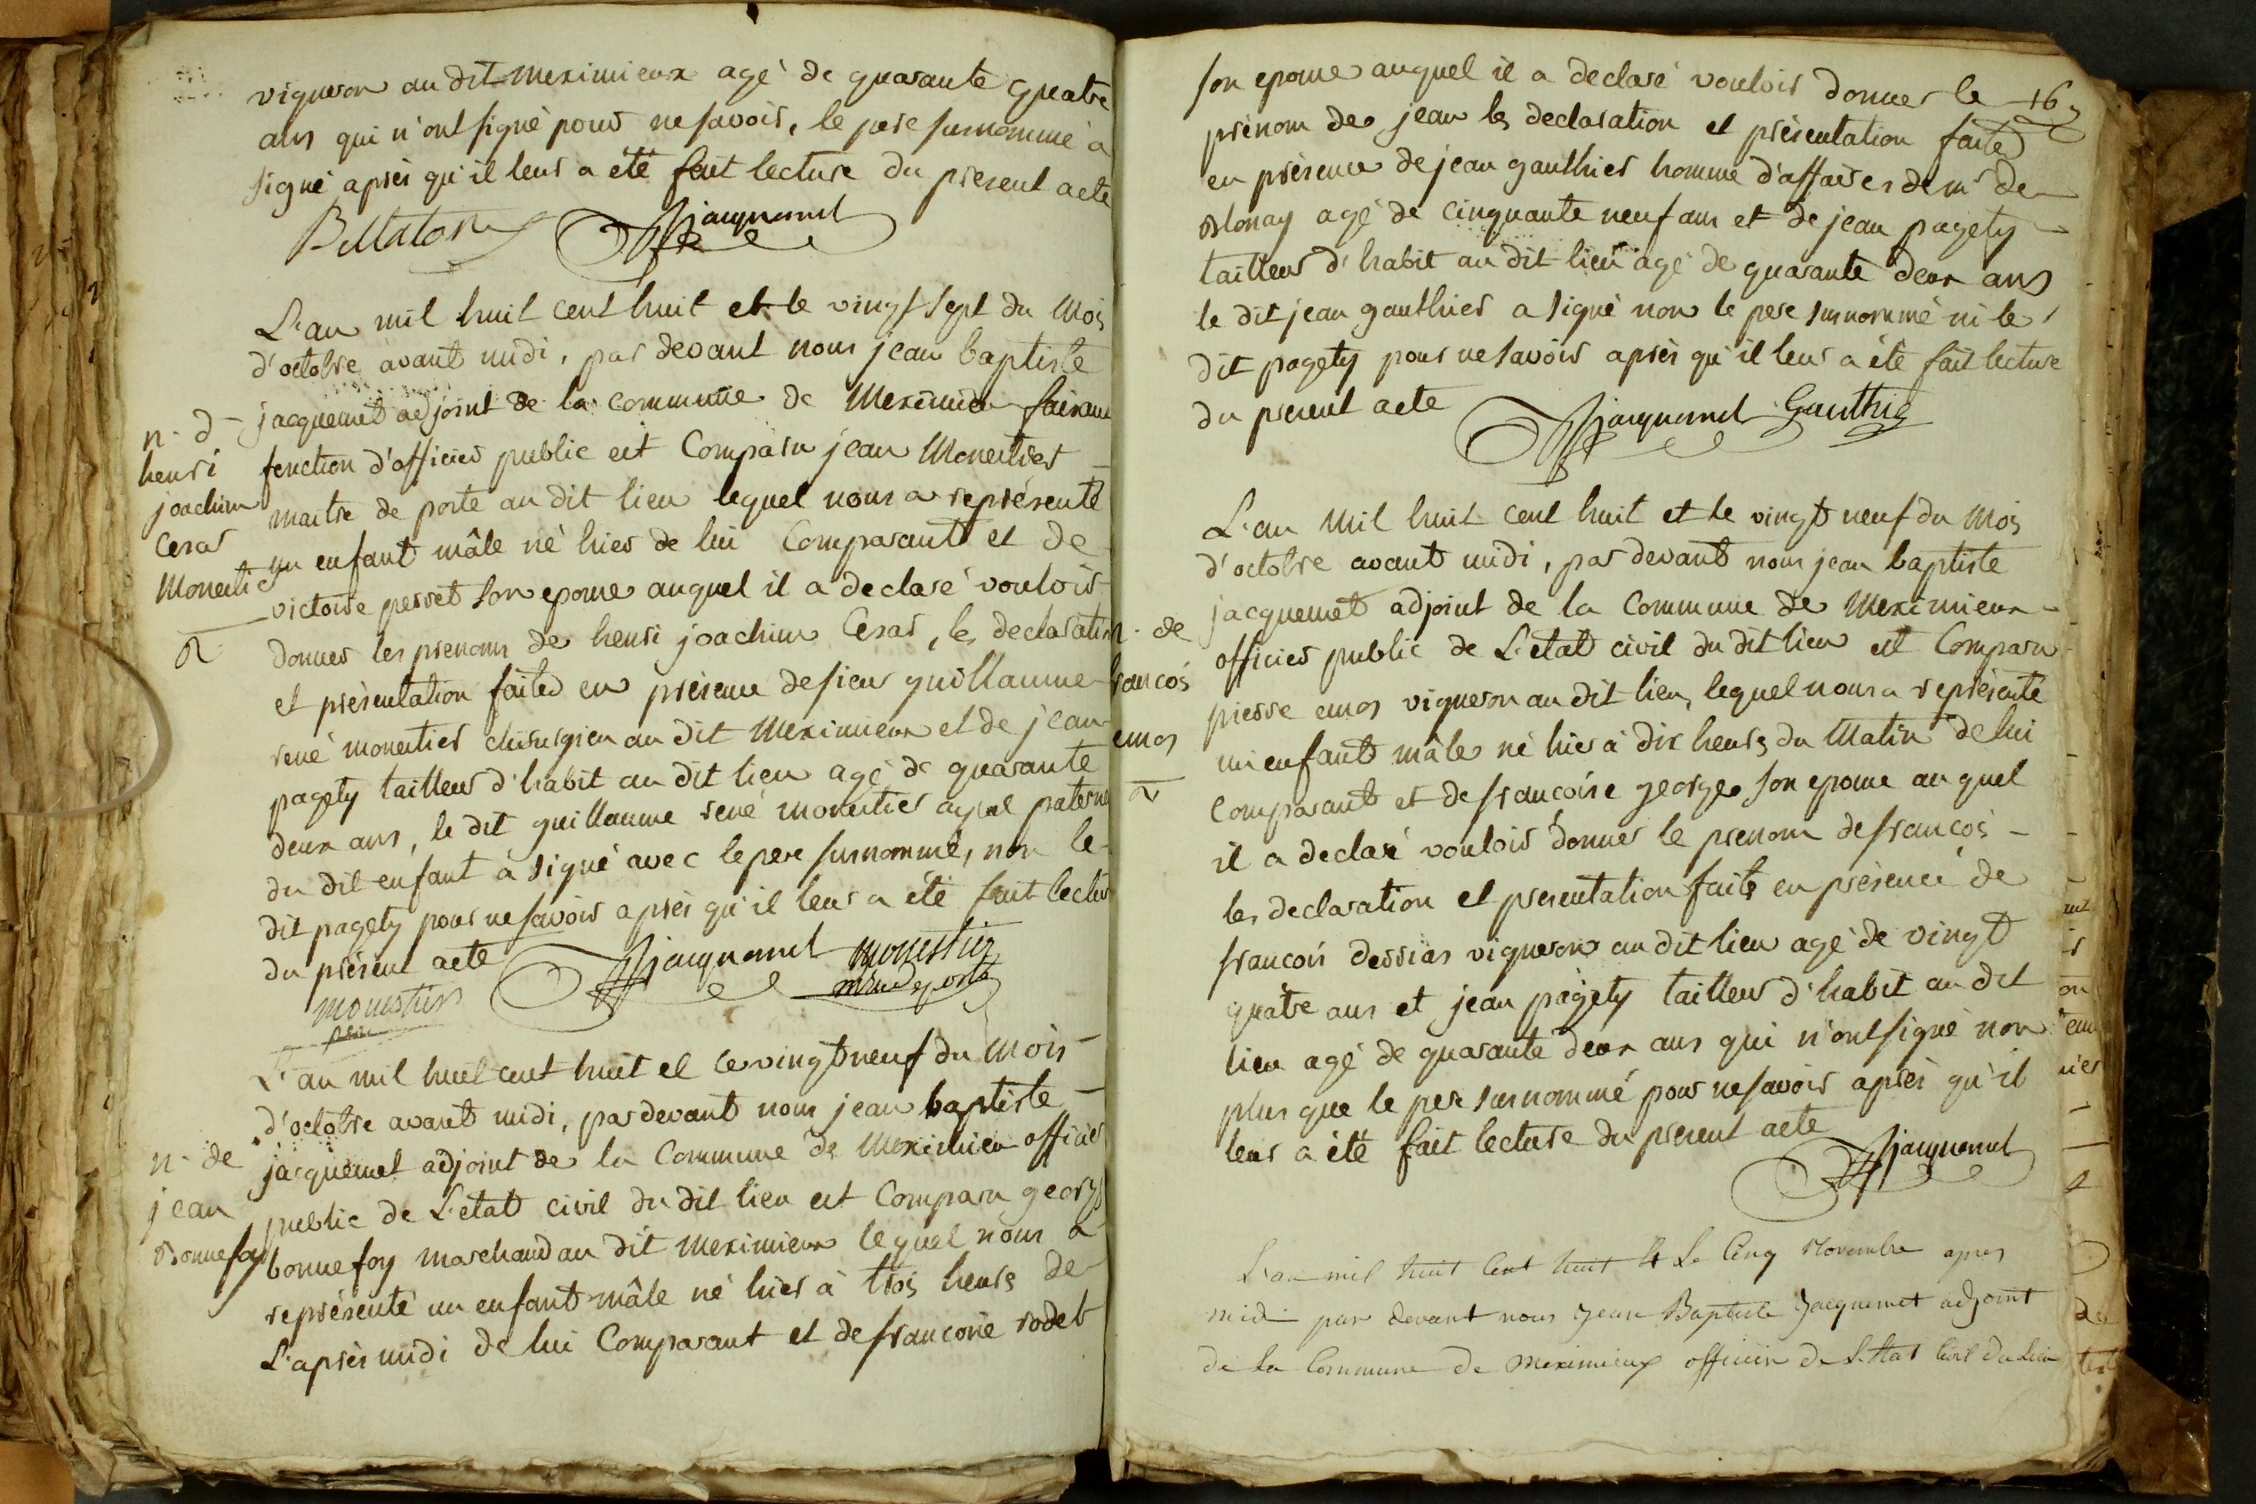 vigneron au dit meximieux agé de quarante quatre
ans qui n'ont signé pour ne savoir, le pere surnommé a
signé après qu'il leur a été fait lecture du present acte
Bellaton Jacquemet
L'an mil huit cent huit et le vingt sept du Mois
d'octobre avant midi, par devant nous jean baptiste
jacquemet adjoint de la commune de Meximieu faisant
fonction d'officier public est Comparu jean Monestier
maitre de poste au dit lieu lequel nous a représenté
un enfant mâle né hier de lui Comparant et de
victoire perret son epouse auquel il a declaré vouloir
donner les prenoms de henri joachim Cesar, les declaration
et présentation faites en présence de sieur guillaume
rené monestier chirurgien au dit Meximieux et de jean
pagety tailleur d'habit au dit lieu agé de quarante
deux ans, le dit guillaume rené monestier ayeul paternel
du dit enfant a signé avec le pere surnommé, non le
dit pagety pour ne savoir après qu'il leur a été fait lecture
du présent acte Jacquemet monestier
monestier
n. d
henri
joachim
Cesar
Monestier
L'an mil huit cent huit et le vingt neuf du Mois
d'octobre avant midi, par devant nous jean baptiste
jacquemet adjoint de la Commune de Meximieu officier
public de L'etat civil du dit lieu est Comparu george
bonnefoy marchand au dit meximieux lequel nous a
représenté un enfant mâle né hier à trois heures de
L'après midi de lui Comparant et de francoise rodet
n. de
jean
Bonnefoy
16
son epouse auquel il a declaré vouloir donner le
prénom de jean les declaration et présentation faites
en présence de jean gauthier homme d'affaires de mr de
Blonay agé de cinquante neuf ans et de jean pagety
tailleur d'habit au dit lieu agé de quarante deux ans
le dit jean gauthier a signé non le pere surnommé ni le
dit pagety pour ne savoir après qu'il leur a été fait lecture
du present acte Jacquemet Gauthier
L'an Mil huit cent huit et le vingt neuf du Mois
d'octobre avant midi, par devant nous jean baptiste
jacquemet adjoint de la Commune de Meximieux
officier public de L'etat civil du dit lieu est Comparu
pierre emos vigneron au dit lieu, lequel nous a représenté
un enfant mâle né hier à dix heures du Matin de lui
Comparant et de francoise george son epouse auquel
il a declaré vouloir donner le prenom de francois
les declaration et presentation faites en présence de
francois dessias vigneron au dit lieu agé de vingt
quatre ans et jean pagety tailleur d'habit au dit
lieu agé de quarante deux ans qui n'ont signé non
plus que le pere surnommé pour ne savoir après qu'il
leur a été fait lecture du present acte
Jacquemet
n. de
francois
emos
L'an mil huit Cent huit & Le Cinq Novembre apres
midi par devant nous Jean Baptiste Jacquemet adjoint
de La Commune de Meximieux officier de L'Etat Civil du Lieu